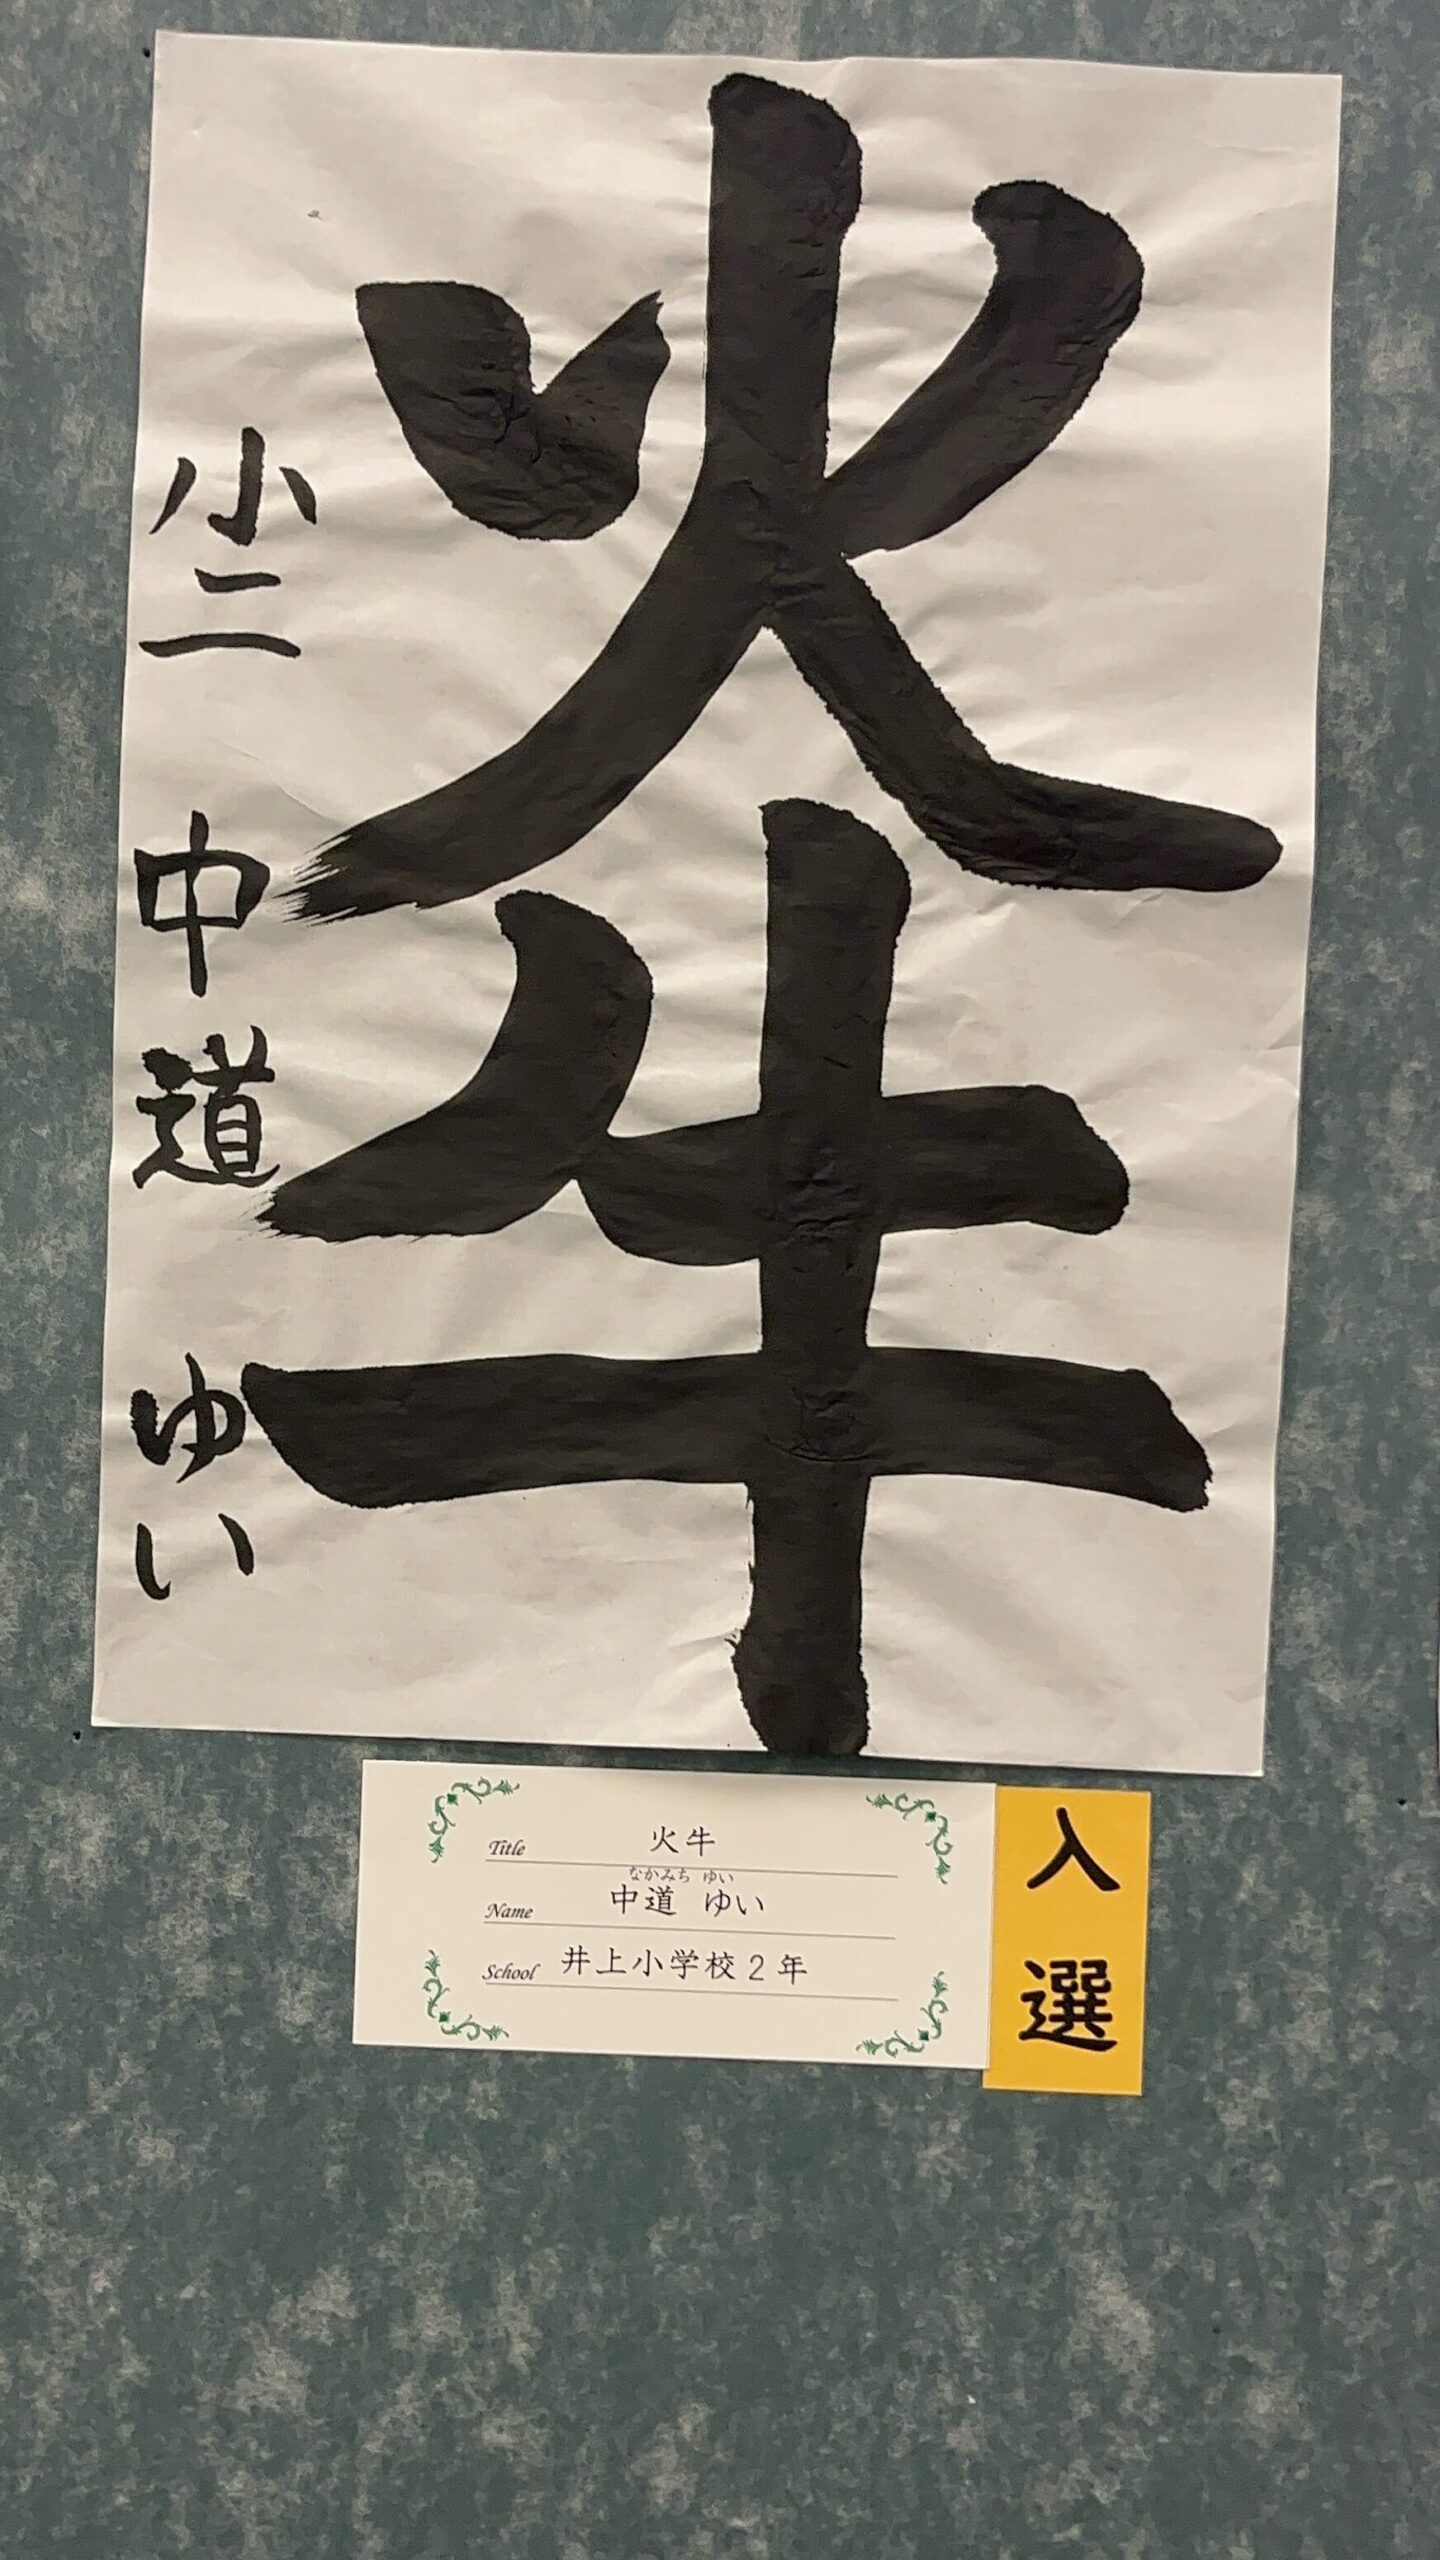 火牛
小二 中道 ゆい
Title 火牛
なかみち ゆい
Name 中道 ゆい
School 井上小学校2年
入選